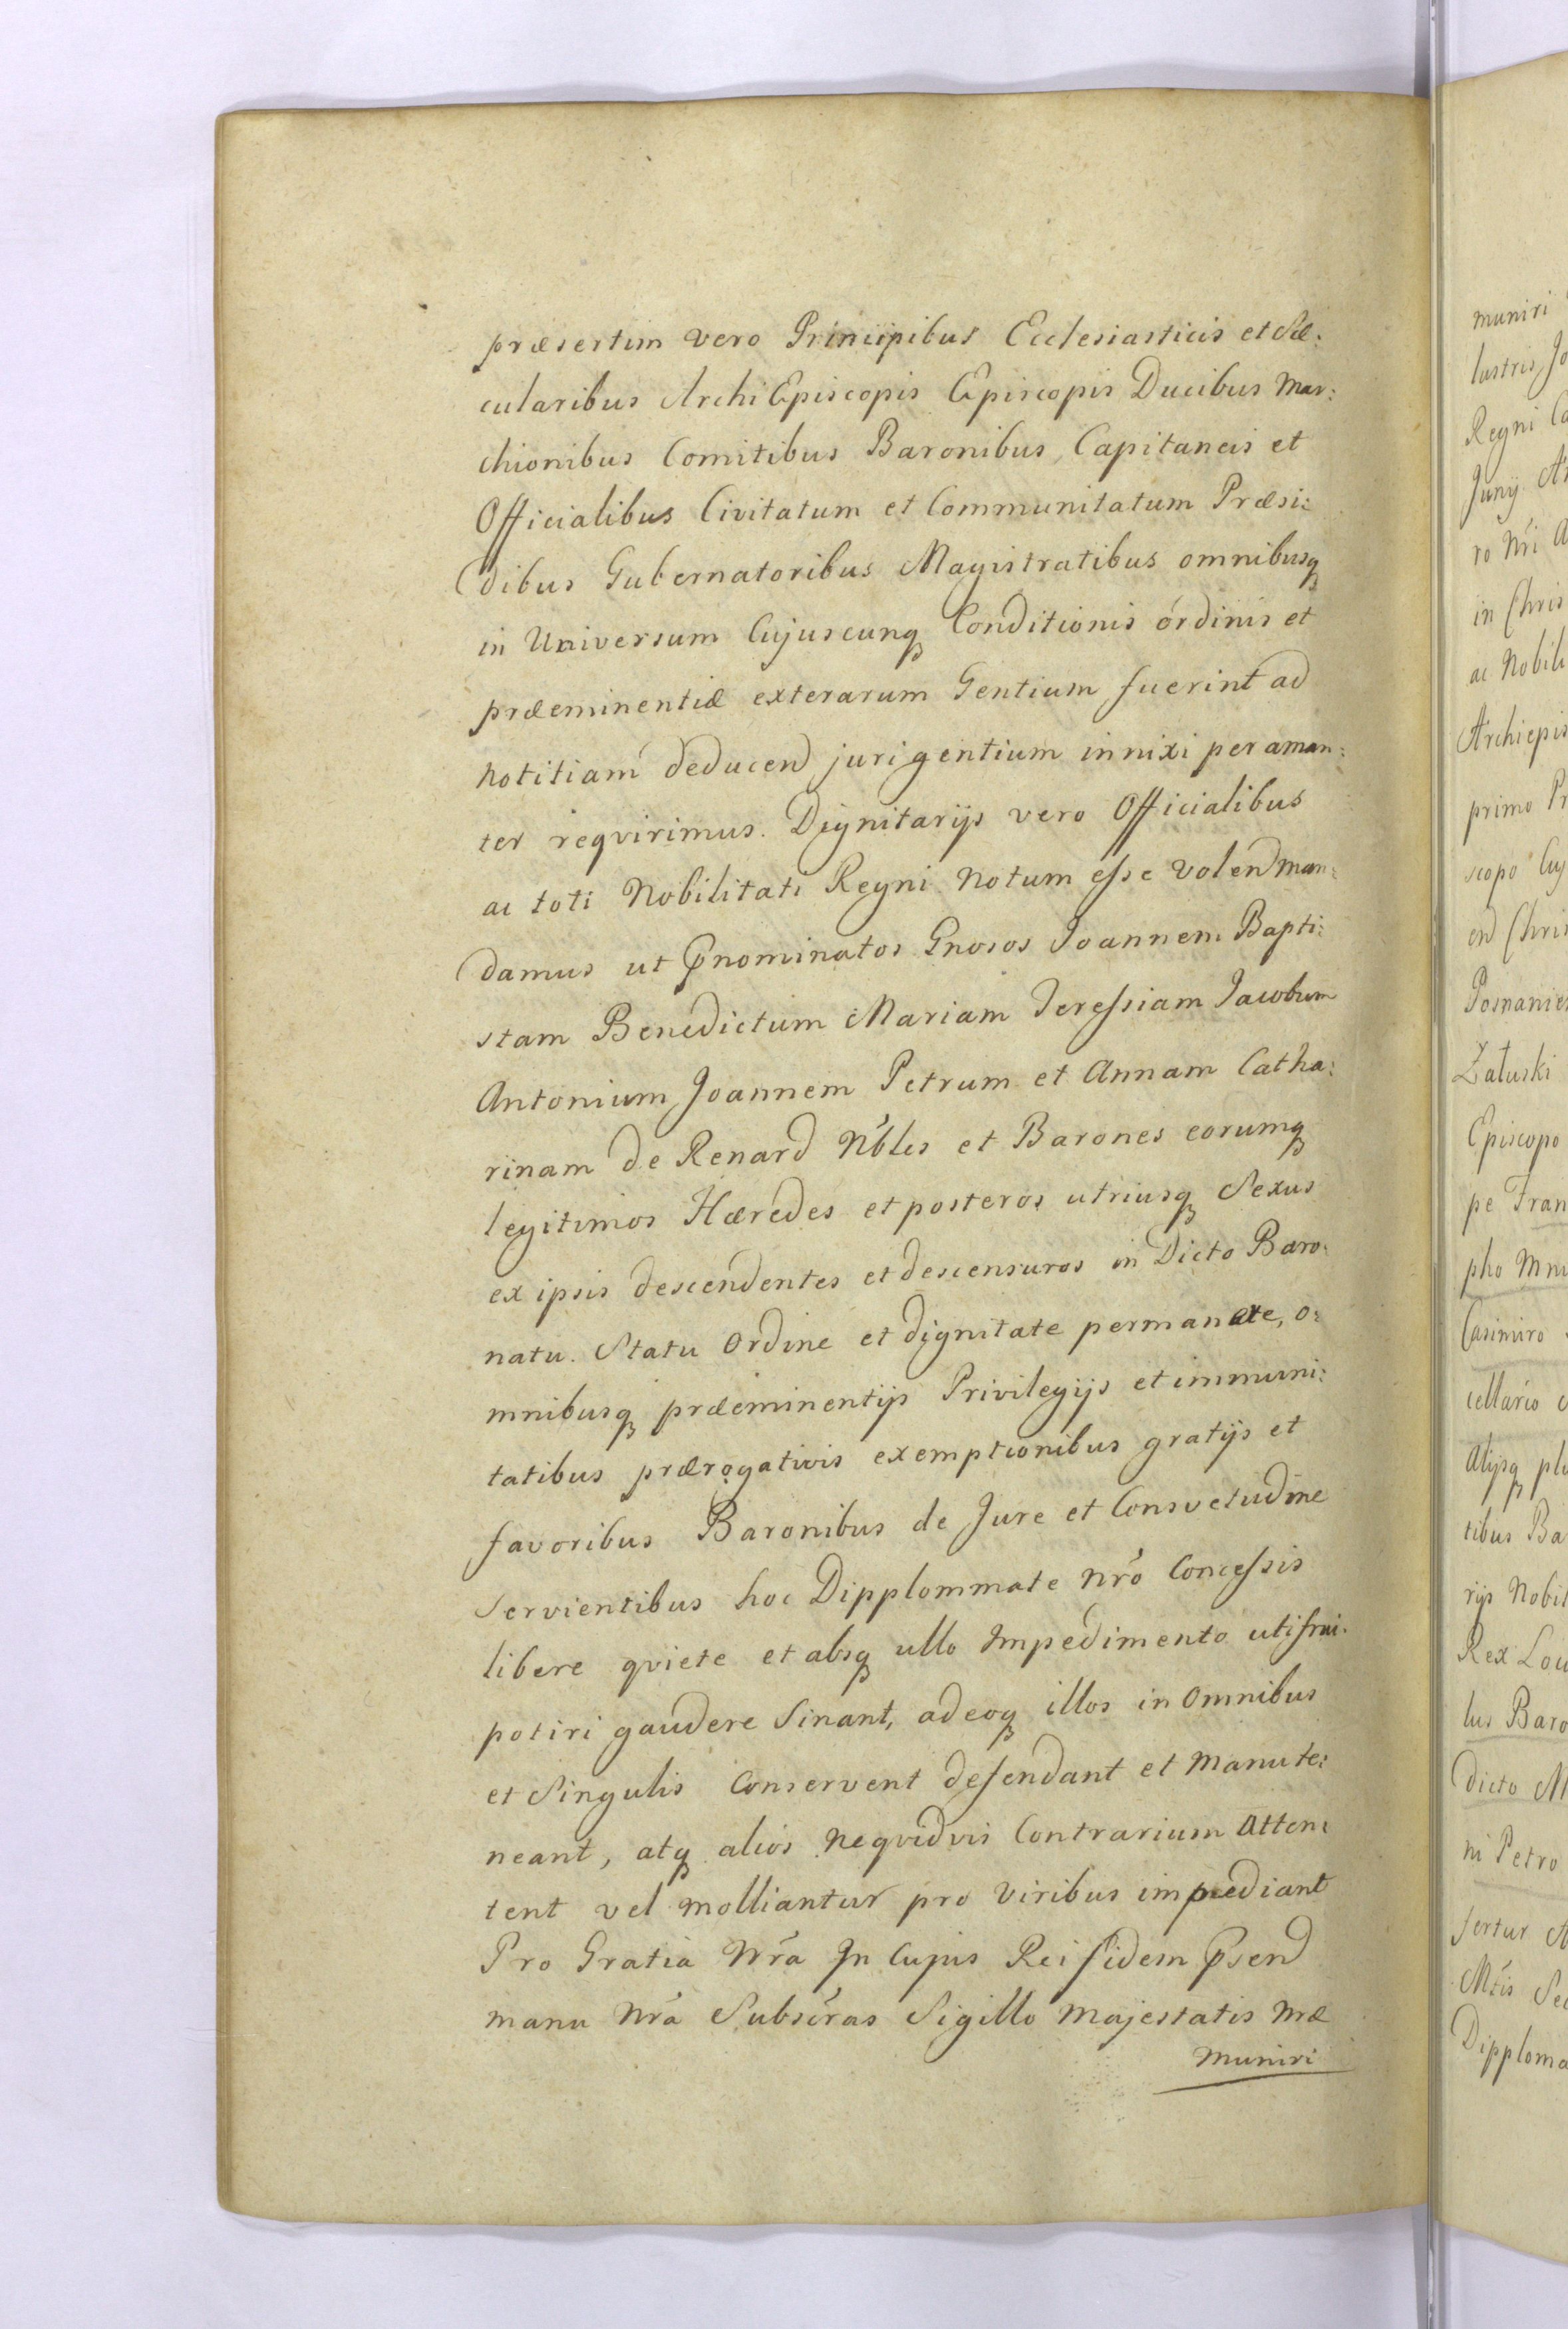 præsertim vero Principibus Ecclesiasticis et Sæ:
cularibus ArchiEpiscopis Episcopis Ducibus Mar:
chionibus Comitibus Baronibus, Capitaneis et
Officialibus Civitatum et Communitatum Præsi:
dibus Gubernatoribus Magistratibus omnibusq
in Universum Cujuscunq Conditionis ordinis et
præeminentiæ exterarum Gentium fuerint ad
notitiam deducend juri gentium innixi peraman:
ter reqvirimus. Dignitarijs vero Officialibus
ac toti Nobilitati Regni Notum esse volend man:
damus ut Pnominatos Gnosos Joannem Bapti:
stam Benedictum Mariam Teressiam Jacobum
Antonium Joannem Petrum et Annam Catha:
rinam de Renard Nbles et Barones eorumq
legitimos Hæredes et posteros utriusq Sexus
ex ipsis descendentes et descensuros in Dicto Baro:
natu. Statu Ordine et dignitate permanere, o:
mnibusq præeminentijs Privilegijs et immuni:
tatibus prærogativis exemptionibus gratijs et
favoribus Baronibus de Jure et Consvetudine
Servientibus hoc Dipplommate nro Concessis
libere qviete et absq ullo Impedimento uti frui.
potiri gaudere Sinant, adeoq illos in Omnibus
et Singulis Conservent defendant et Manute:
neant, atq alios neqvidvis Contrarium Atten:
tent vel molliantur pro viribus impediant
Pro Gratia Nra In Cujus Rei fidem Psend
manu Nra Subscras Sigillo Majestatis Nræ
Muniri
muniri
lustris Jo
Regni Ca
Junij A
ro Nri A
in Chris
ac Nobili
Archiepis
primo Pr
scopo Cuj
end Chris
Posnanies
Załuski
Episcopo
pe Fran
pho Mni
Casimiro
cellario
Alijsq plu
tibus Ba
rijs Nobil
Rex Lou
lus Baro
dicto M
ni Petro
fertur A
Mtis Se
Dipploma